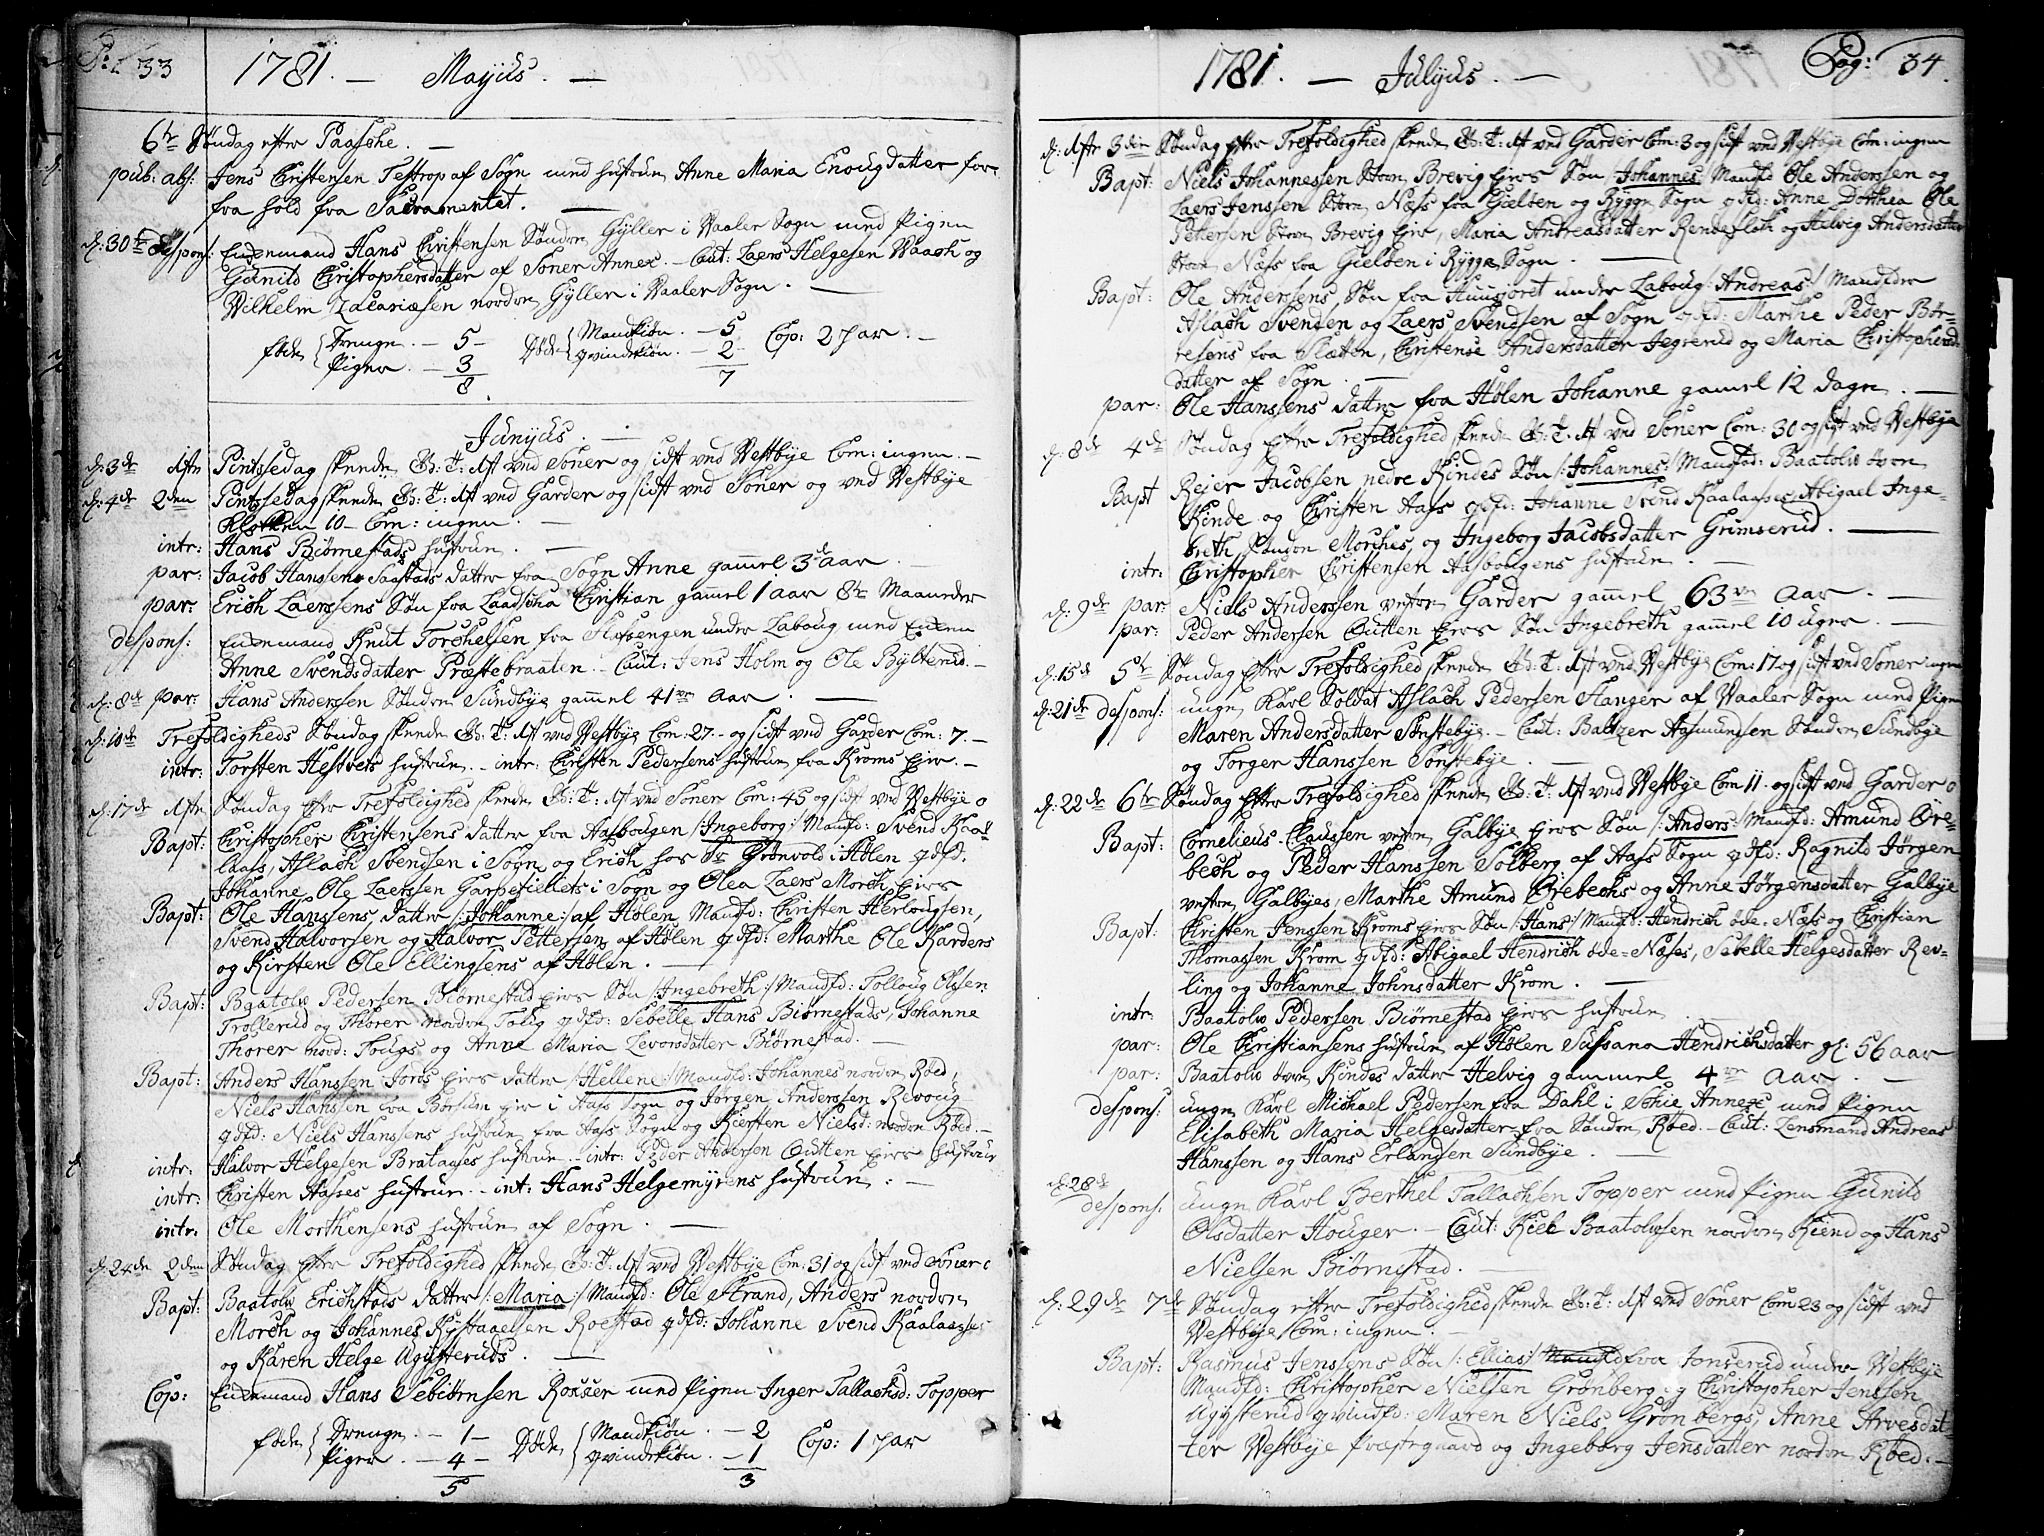 33
1781. — Mayus. —
6te Søndag efter Paasche. —
pub: abs: Jens Christensen Testrop af Sogn med hustrue Anne Maria Enougdatter for-
fra hold fra Sacramentet. —
d: 30te despons: Enkemand Hans Christensen Søndre Gyller i Vaaler Sogn med Pigen
Gunild Christophersdatter af Soner Annex. — Caut: Laers Helgesen Vaach og
Wilhelm Zacariæsen nordre Gyller i Vaaler Sogn. —
føde { Drenge. — 5 — Døde { Mandkiøn. — 5 Cop: 2 par. —
Piger. — 3 qvindekiøn. — 2
8 7
Junyus. —
d: 3de 1ste Pintsedag skeede Gs: T: 1st ved Soner og sidst ved Vestbye Com: ingen. —
d: 4de 2den Pintsedag skeede Gs: T: 1st ved Garder og sidst ved Soner og ved Vestbye
Klokken 10 — Com: ingen. —
intr: Hans Biørnestads hustrue. —
par: Jacob Hanssens Saastads datter fra Sogn Anne gammel 3de aar. —
par: Erich Laerssens Søn fra Laadscha Christian gammel 1 aar 8te Maaneder
despons: Enkemand Knut Torchelsen fra Slefsengen under Laboug med Enken
Anne Svendsdatter Præstebraaten. — Caut: Jens Holm og Ole Bylterud. —
d: 8de par: Hans Anderssen Søndre Sundbye gammel 41ve aar. —
d: 10de Trefoldigheds Søndag skeede Gs: T: 1st ved Vestbye Com: 27 — og sidst ved Garder Com: 7. —
intr: Torsten Hestvets hustrue. — intr: Christen Pedersens hustrue fra Kroms Eie. —
d: 17de 1ste Søndag efter Trefoldighed skeede Gs: T: 1st ved Soner Com: 45 og sidst ved Vestbye 0
Bapt: Christopher Christensens datter fra Aasbougen /: Ingeborg :/ Mandfd: Svend Kaa-
laas, Aslach Svendsen i Sogn og Erich hos Sr Grønvold i Hølen qdfd.
Johanne Ole Laerssen Garpefiellets i Sogn og Olea Laers Morch Eies
Bapt: Ole Hanssens datter /: Johanne :/ af Hølen Mandfd: Christen Herlougsen,
Svend Halvorsen og Halvor Pettersen af Hølen qdfd: Marthe Ole Karders
og Kirsten Ole Ellingsens af Hølen. —
Bapt: Baatolv Pedersen Biørnestad Eies Søn /: Ingebreth :/ Mandfd: Tolloug Olssen
Trollerud og Thorer nordre Toug qdfd: Sebelle Hans Biørnestads, Johanne
Thorer nord: Tougs og Anne Maria Levorsdatter Biørnestad. —
Bapt: Anders Hanssen Jords Eies datter /: Hellene :/ Mandfd: Johannes nordre Røed,
Niels Hanssen fra Børsum Eie i Aass Sogn og Jørgen Anderssen Revoug
qdfd: Niels Hanssens hustrue fra Aass Sogn og Kiersten Nielsd: nordre Røed. —
intr: Halvor Helgesen Brataases hustrue. — intr: Peder Andersen Qutten Eies hustrue
intr: Christen Aasses hustrue. — int: Hans Helgemyrens hustrue. —
intr: Ole Morthensens hustrue af Sogn. —
d: 24de 2den Søndag efter Trefoldighed skeede Gs: T: 1st ved Vestbye Com: 31 og sidst ved Soner 0
Bapt: Baatolv Erichstads datter /: Maria :/ Mandfd: Ole Strand, Anders nordre
Morch og Johannes Rystaaelsen Roestad qdfd: Johanne Svend Kaalaases
og Karen Helge Ugysteruds. —
Cop: Enkemand Hans Sebiørnsen Rosser med Pigen Inger Tallachsd: Topper
føde { Drenge. — 1 — Døde { Mandkiøn. — 2 Cop: 1 par
Piger. — 4 — qvindekiøn. — 1
5 3
1781. — Julyus. — Pag: 34.
d: 1ste 3die Søndag efter Trefoldighed skeede Gs: T: 1st ved Garder Com: 3 og sidst ved Vestbye Com: ingen
Bapt: Niels Johannessen Store Brevig Eies Søn Johannes Mandfd Ole Anderssen og
Laers Jenssen Store Næss fra Gielben og Rygge Sogn qdfd: Anne Dorthea Ole
Pettersen Store Brevig Eie, Maria Andreasdatter Rendesloth og Helvig Andersdatter
Store Næss fra Gielben i Rygge Sogn. —
Bapt: Ole Andersens Søn fra Huusjoret under Laboug /: Andreas :/ Mandfdre
Aslach Svenden og Laers Svendsen af Sogn qdfd: Marthe Peder Bør-
resens fra Slætten, Christense Andersdatter Jegerud og Maria Christophersd-
datter af Sogn. —
par: Ole Hanssens datter fra Hølen Johanne gamel 12 dage. —
d: 8de 4de Søndag efter Trefoldighed skeede Gs: T: 1st ved Soner Com: 30 og sidst ved Vestbye
Bapt Reier Jacobsen nedre Kindes Søn /: Johannes :/ Mandfd: Baatolv øvre
Kinde og Christen Aass qdfd: Johanne Svend Kaalaases, Abigael Inge-
breth Søndre Morches, og Ingeborg Jacobsdatter Grimserud. —
intr: Christopher Christensen Aasbougens hustrue. —
d: 9de par: Niels Anderssen vestre Garder gammel 63ve aar. —
par: Peder Andersen Qutten Eies Søn Ingebreth gammel 10 uger. —
d: 15de 5te Søndag efter Trefoldighed skeede Gs: T: 1st ved Vestbye Com: 17 og sidst ved Soner ingen
d: 21de despons: unge Karl Soldat Aslach Pedersen Slanger af Vaaler Sogn med Pigen
Maren Andersdatter Sønstebye. — Caut: Baltzer Aasmundsen Søndre Sundbye
og Torger Hanssen Sønstebye. —
d: 22de 6te Søndag efter Trefoldighed skeede Gs: T: 1st ved Vestbye Com 11 — og sidst ved Garder 0
Bapt: Cornelieus Claussen vestre Galbye Eies Søn /: Anders :/ Mandfd: Amund Ore-
bech og Peder Hanssen Solberg af Aass Sogn qdfd: Ragnild Jørgen
vestre Galbyes, Marthe Amund Orebechs og Anne Jørgensdatter Galbye
Bapt: Christen Jenssen Kroms Eies Søn /: Hans :/ Mandfd: Hendrich øde-Næss og Christian
Thomassen Krom qdfd: Abigael Hendrich øde-Næses, Sebelle Helgesdatter Rev-
ling og Johanne Johnsdatter Krom. —
intr: Baatolv Pedersen Biørnestad Eies hustrue. —
par: Ole Christiansens hustrue af Hølen Sussana Hendrichsdatter gl: 56 aar
par: Baatolv øvre Kindes datter Helvig gammel 4re aar. —
despons: unge Karl Michael Pedersen fra Dahl i Schie Annexe med Pigen
Elisabeth Maria Helgesdatter fra Søndre Røed. — Caut: Lensmand Andreas
Hanssen og Hans Erlandsen Sundbye. —
d: 28de despons: unge Karl Berthel Tallachsen Topper med Pigen Gunild
Olsdatter Houger. — Caut: Kield Baatolvsen nordre Kiend og Hans
Nielsen Biørnestad. —
d: 29de 7de Søndag efter Trefoldighed skeede Gs: T: 1st ved Soner Com 23 og sidst ved
Vestbye Com: ingen. —
Bapt: Rasmus Jenssens Søn /: Ellias :/ Mandfd fra Jonserud under Vestbye
Mandfd: Christopher Nielsen Grønberg og Christopher Jenssen
Ugysterud qvindfd: Maren Niels Grønbergs, Anne Arvesdat-
ter Vestbye Præstegaard og Ingeborg Jensdatter nordre Røed. —